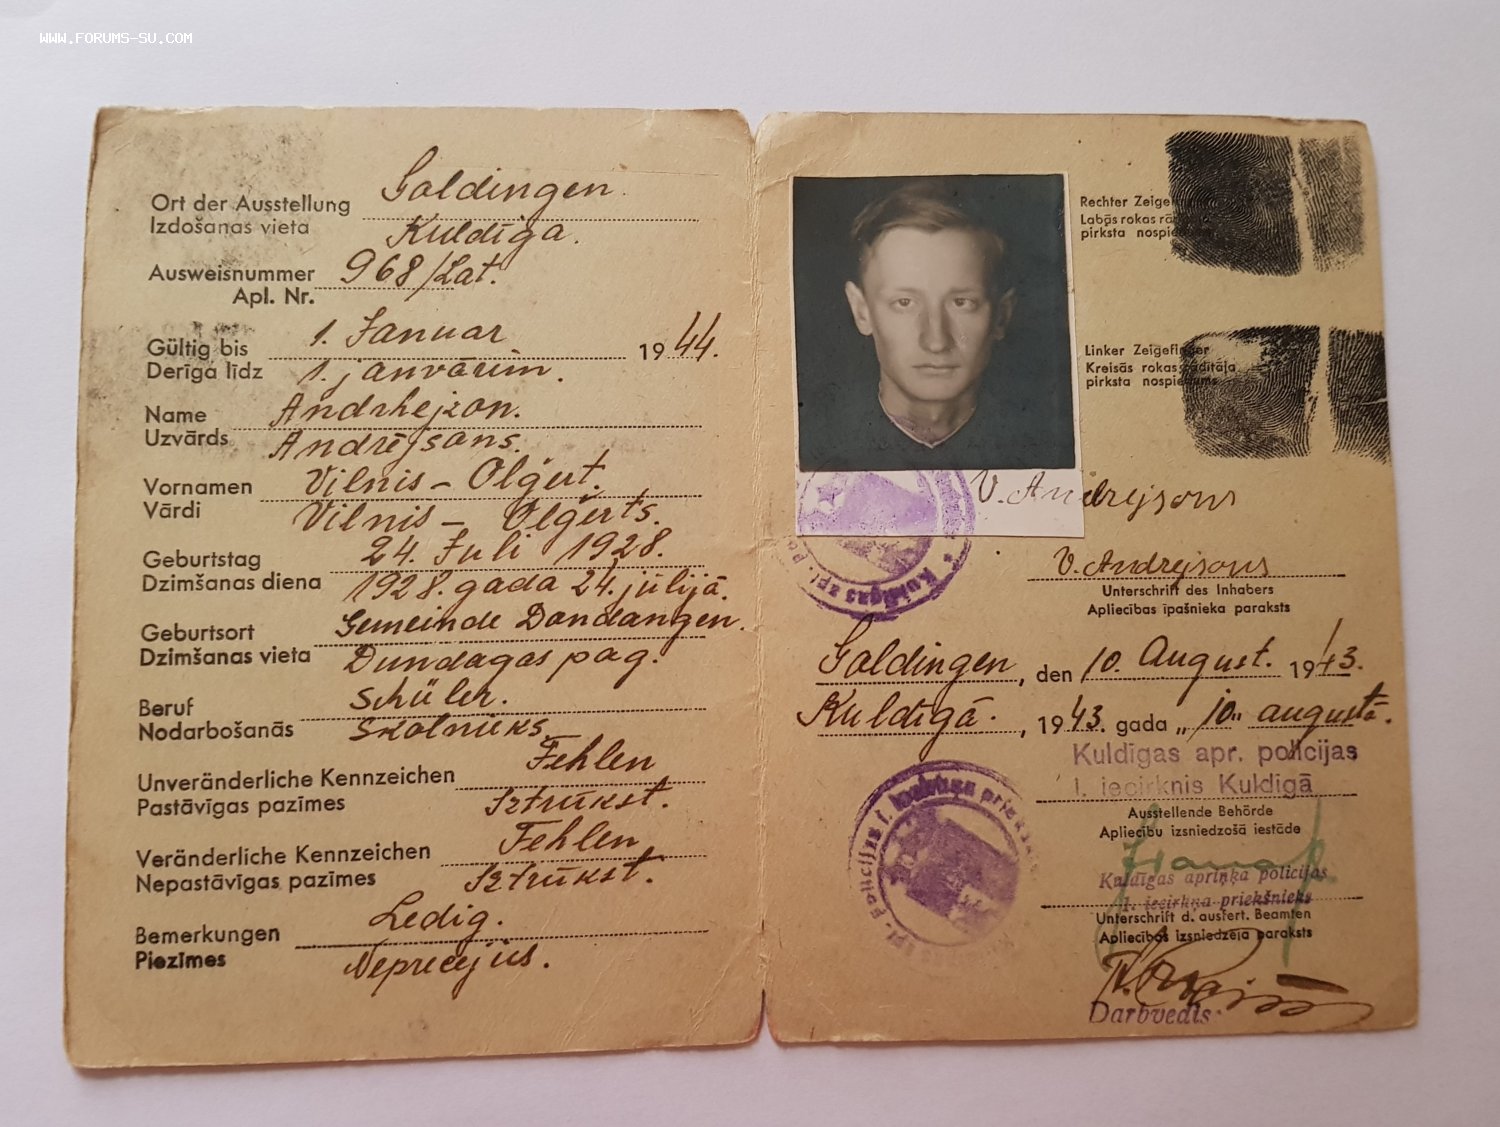 WWW.FORUMS-SU.COM
Ort der Ausstellung Goldingen.
Izdošanas vieta Kuldīga.
Ausweisnummer 968/Lat.
Apl. Nr.
Gültig bis 1. Januar 1944.
Derīga līdz 1. janvārim.
Name Andrhejzon.
Uzvārds Andrējsons.
Vornamen Vilnis – Olģert.
Vārdi Vilnis – Olģerts.
Geburtstag 24. Juli 1928.
Dzimšanas diena 1928. gada 24. jūlijā.
Geburtsort Gemeinde Dondangen.
Dzimšanas vieta Dundagas pag.
Beruf Schüler.
Nodarbošanās Skolnieks.
Unveränderliche Kennzeichen Fehlen
Pastāvīgas pazīmes Iztrūkst.
Veränderliche Kennzeichen Fehlen
Nepastāvīgas pazīmes Iztrūkst.
Bemerkungen Ledig.
Piezīmes Neprecējies.
Rechter Zeigefinger
Labās rokas
pirksta nospiedums
Linker Zeigefinger
Kreisās rokas rādītāja
pirksta nospiedums
V. Andrejsons
Kuldīgas apr.
V. Andrejsons
Unterschrift des Inhabers
Apliecības īpašnieka paraksts
Goldingen, den 10. August. 1943.
Kuldīgā., 1943. gada „10„ augustā.
Kuldīgas apr. policijas
I. iecirknis Kuldīgā
Ausstellende Behörde
Apliecību izsniedzošā iestāde
policijas I. iecirkņa priekšnieks
Kuldīgas apriņķa policijas
I. iecirkņa priekšnieks
Unterschrift d. ausfert. Beamten
Apliecības izsniedzēja paraksts
Darbvedis